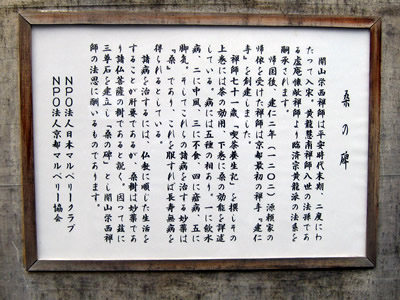 桑の碑
開山栄西禅師は平安時代末期、二度にわ
たって入宋。黄龍慧南禅師八世の法孫であ
る虚庵懐敞禅師より臨済宗黄龍派の法系を
嗣承されます。
帰国後、建仁二年(一二〇二)源頼家の
帰依を受けた禅師は京都最初の禅寺『建仁
寺』を創建しました。
禅師七十一歳、『喫茶養生記』を撰しその
上巻には茶の効用、下巻に桑の効能を詳述
している。病には五種の相あり。一に飲水
病、二に中風、三に不食、四に瘡病、五に
脚気。そしてこれらの諸病を治する妙薬は
『桑』であり、これを服すれば長寿無病を
得られるとしている。
諸病を治するには、仏教に順じた生活を
することが肝要であるが、桑樹は妙薬であ
り諸仏菩薩の樹であると説く。因って茲に
三尊石を建立し「桑の碑」とし開山栄西禅
師の法恩に酬いるものであります。
NPO法人日本マルベリークラブ
NPO法人京都マルベリー協会